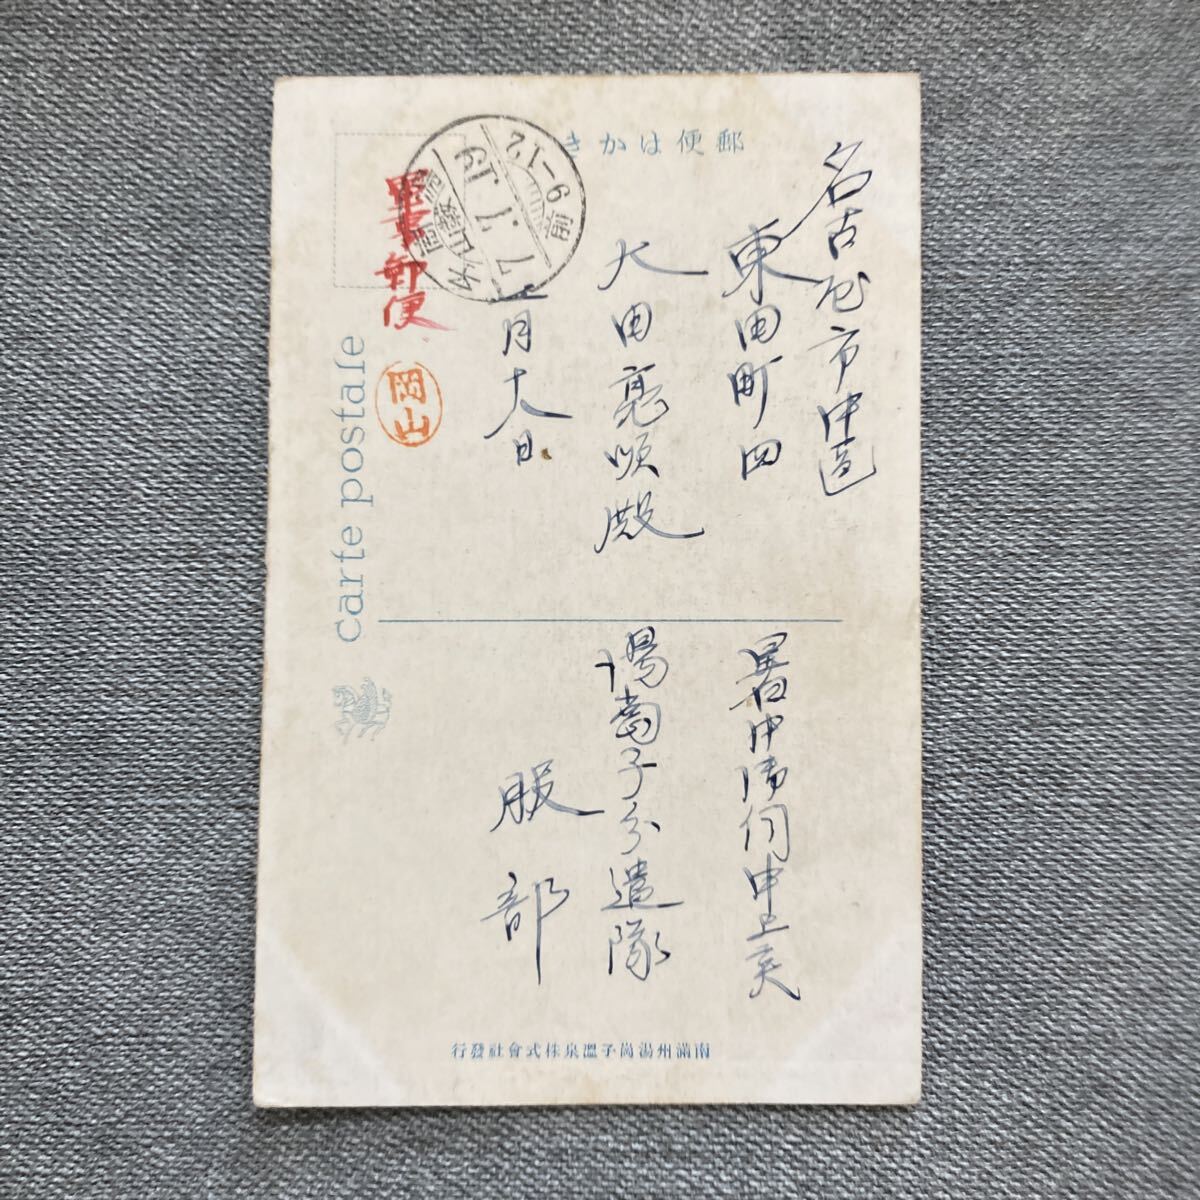 郵便はかき
軍事郵便
岡山
7.7.19
前9-12
名古屋市中區
東田町四
大田亮順殿
七月十八日
carte postale
暑中御伺申上候
湯崗子分遣隊
服部
南滿州湯崗子溫泉株式會社發行